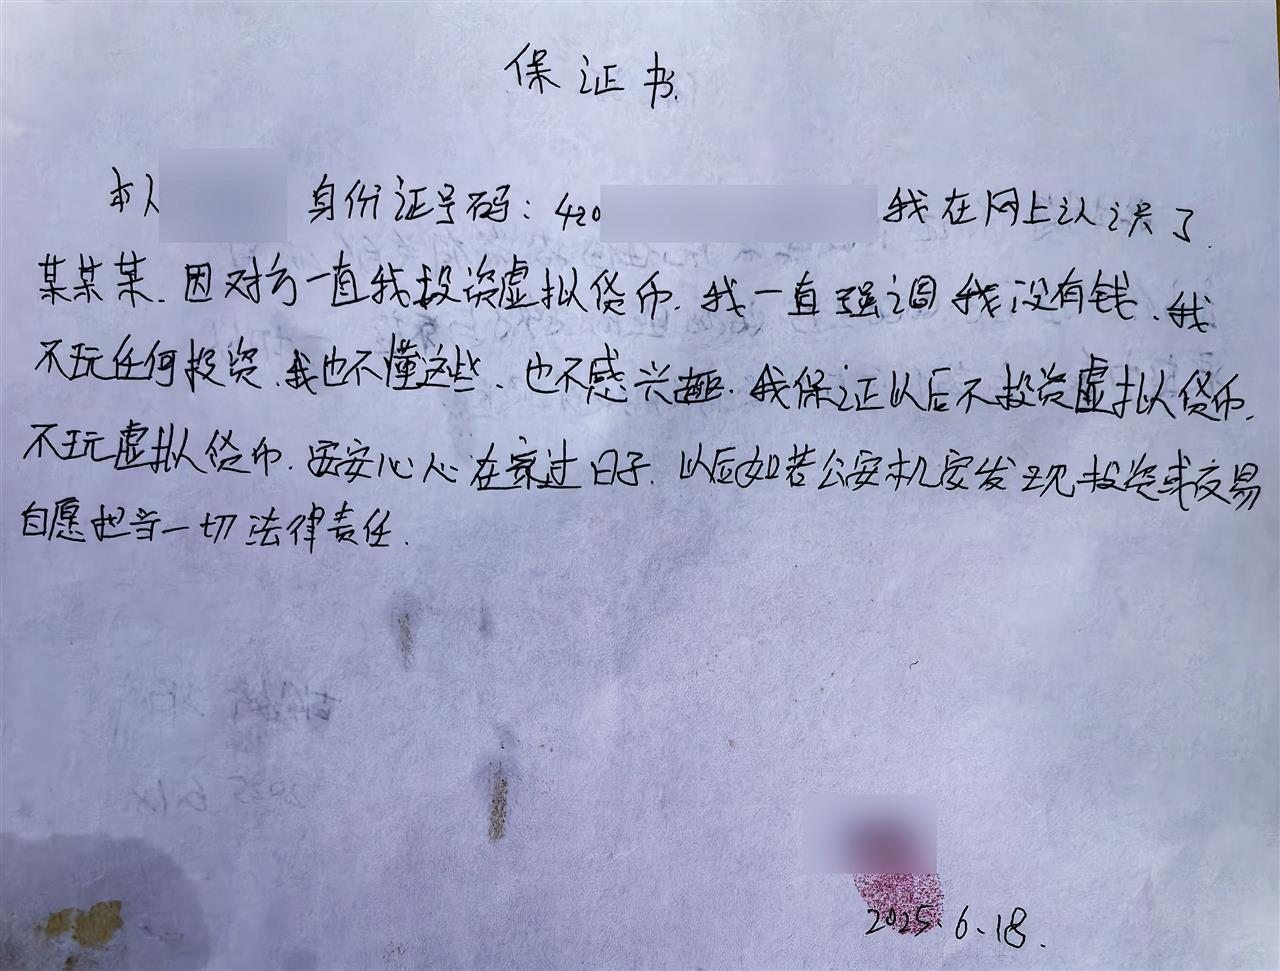 保证书.
本人 身份证号码: 420 我在网上认识了.
某某某. 因对方一直我投资虚拟货币. 我一直强调我没有钱. 我
不玩任何投资. 我也不懂这些. 也不感兴趣. 我保证以后不投资虚拟货币.
不玩虚拟货币. 安安心心在家过日子. 以后如若公安机安发现投资或交易
自愿担当一切法律责任.
2025.6.18.